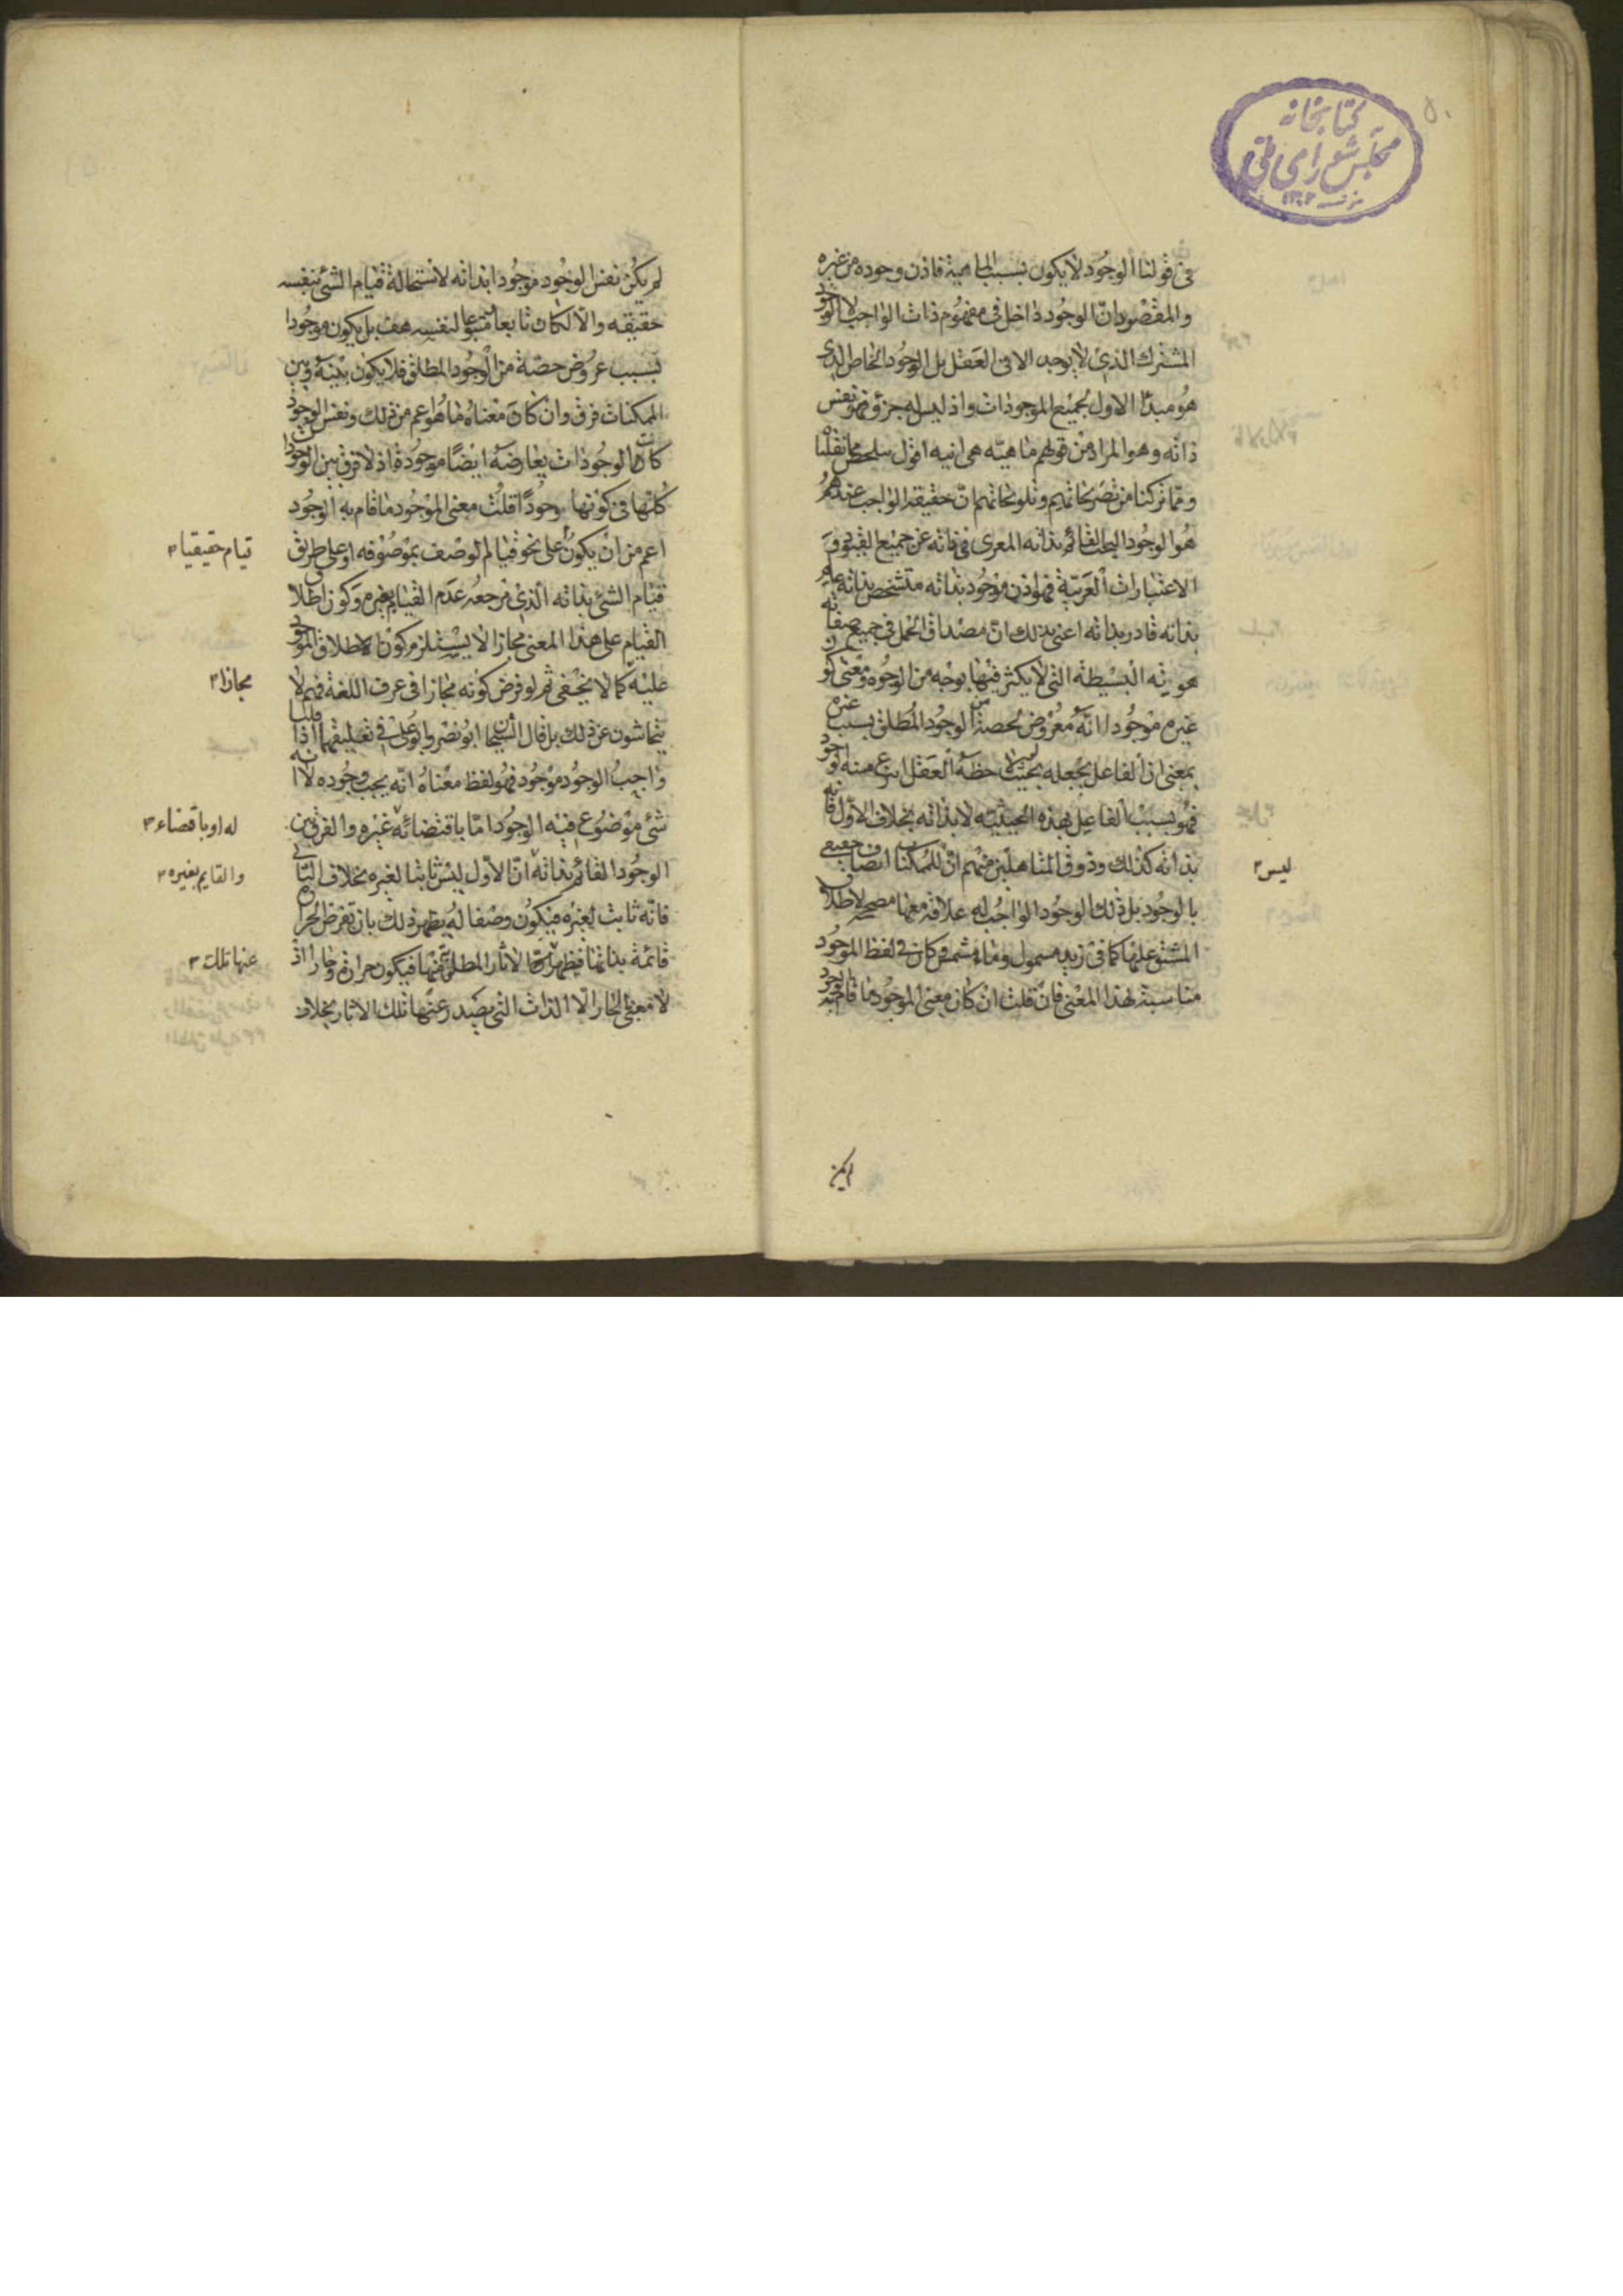 كتابخانه
مجلس شوراى ملى
في قولنا الوجود لا يكون بسبب الماهية فاذن وجوده من غيره
والمقصود ان الوجود داخل في مفهوم ذات الواجب لا الوجود
المشترك الذي لا يوجد الا في العقل بل الوجود الخاص الذي
هو مبدأ الاول لجميع الموجودات واذ ليس له جزؤ فهو نفس
ذاته وهو المراد من قولهم ماهيته هي انيه اقول سلخص ما نقلنا
ومما تركنا من تصريحاتهم وتلويحاتهم ان حقيقة الواجب عندهم
هو الوجود البحت القائم بذاته المعرى في ذاته عن جميع القيود و
الاعتبارات الغريبة فهو اذن موجود بذاته متشخص بذاته عالم
بذاته قادر بذاته اعني بذلك ان مصداق الحمل في جميع صفاته
هويته البسيطة التي لا يكثر فيها بوجه من الوجوه ومعنى كون
غيره موجودا انه معروض لحصة من الوجود المطلق بسبب غيره
بمعنى ان الفاعل يجعله بحيث لو لاحظه العقل انتزع منه الوجود
فهو بسبب الفاعل بهذه الحيثية لا بذاته بخلاف الاول فانه
بذاته كذلك وذوق المتاهلين منهم ان للممكنات اتصاف حقيقي
ليس ٣
بالوجود بل ذلك الوجود الواجب له علاقة معها مصحح لاطلاق
المشتق عليها كما في زيد مسمول وماء مشمس فكان في لفظ الموجود
مناسبة لهذا المعنى فان قلت ان كان معنى الموجود ما قام به الوجود
لم يكن
لم يكن نفس الوجود موجودا بذاته لاستحالة قيام الشئ بنفسه
حقيقه والا لكان تابعا متبوعا لنفسه هف بل يكون موجودا
بسبب عروض حصة من الوجود المطلق فلا يكون بينه وبين
الممكنات فرق وان كان معناه ما هو اعم من ذلك ونفس الوجود
كان الوجودات بعارضه ايضا موجودة اذ لا فرق بين الوجودات
كلها في كونها وجودا قلت معنى الموجود ما قام به الوجود
اعم من ان يكون على نحو قيام الوصف بموصوفه او على طريق
قيام حقيقيا ٣
قيام الشئ بذاته الذي مرجعه عدم القيام بغيره وكون اطلاق
القيام على هذا المعنى مجازا لا يستلزم كون الاطلاق الموجود
عليه كما لا يخفى ثم لو فرض كونه مجازا في عرف اللغة فهم لا
مجازا ٣
يتحاشون عن ذلك بل قال الشيخان ابو نصر وابو على في تعليقهما اذا قلنا
واجب الوجود موجود فهو لفظ معناه انه يجب وجوده لا انه
شئ موضوع فيه الوجود اما باقتضائه غيره والفرق بين
له او باقتضاء ٣
الوجود القائم بذاته ان الاول ليس ثابتا لغيره بخلاف الثاني
والقايم بغيره ٣
فانه ثابت لغيره فيكون وصفا له يظهر ذلك بان تفرض الحرارة
قائمة بذاتها فيظهر الاثار المطلوبة منها فيكون حرارة وحارا اذ
عنها تلك ٣
لا معنى للحار الا الذات التي يصدر عنها تلك الاثار بخلاف